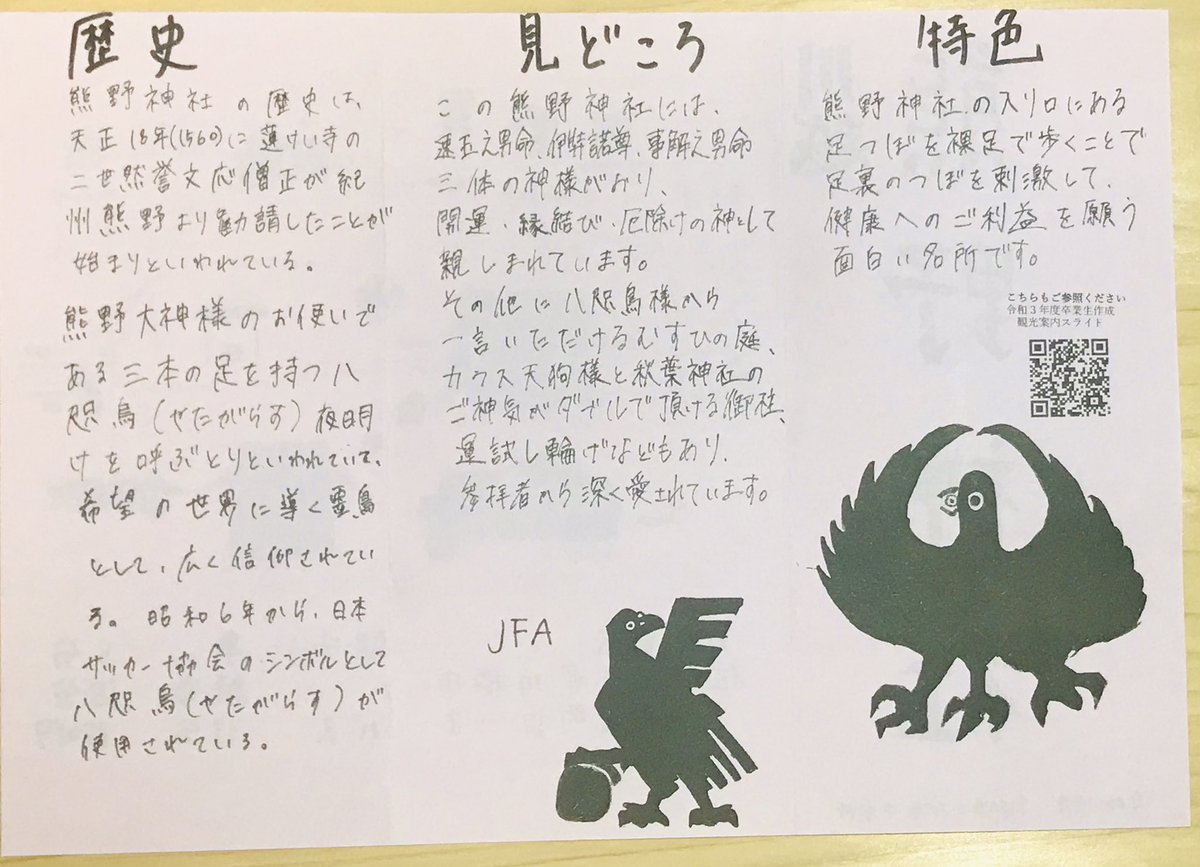 歴史
熊野神社の歴史は、
天正18年(1560)に蓮けい寺の
二世然誉文応僧正が紀
州熊野より勧請したことが
始まりといわれている。
熊野大神様のお使いで
ある三本の足を持つ八
咫烏(やたがらす)夜明
けを呼ぶとりといわれていて、
希望の世界に導く霊鳥
として、広く信仰されてい
る。昭和6年から、日本
サッカー協会のシンボルとして
八咫烏(やたがらす)が
使用されている。
見どころ
この熊野神社には、
速玉之男命、伊弉諾尊、事解之男命
三体の神様がおり、
開運・縁結び・厄除けの神として
親しまれています。
その他に八咫烏様から
一言いただけるむすひの庭、
カラス天狗様と秋葉神社の
ご神気がダブルで頂ける御社、
運試し輪げなどもあり、
参拝者から深く愛されています。
JFA
特色
熊野神社の入り口にある
足つぼを裸足で歩くことで
足裏のつぼを刺激して、
健康へのご利益を願う
面白い名所です。
こちらもご参照ください
令和3年度卒業生作成
観光案内スライド